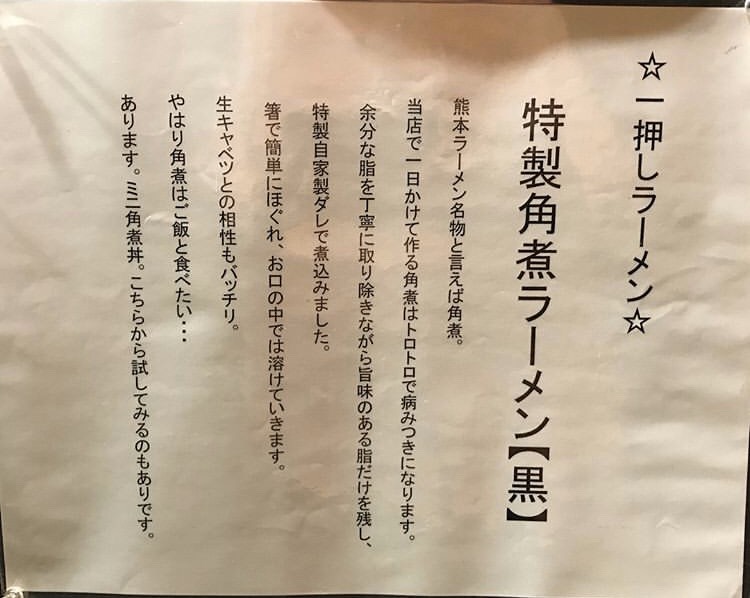 ☆一押しラーメン☆
特製角煮ラーメン【黒】
熊本ラーメン名物と言えば角煮。
当店で一日かけて作る角煮はトロトロで病みつきになります。
余分な脂を丁寧に取り除きながら旨味のある脂だけを残し、
特製自家製ダレで煮込みました。
箸で簡単にほぐれ、お口の中では溶けていきます。
生キャベツとの相性もバッチリ。
やはり角煮はご飯と食べたい・・・
あります。ミニ角煮丼。こちらから試してみるのもありです。